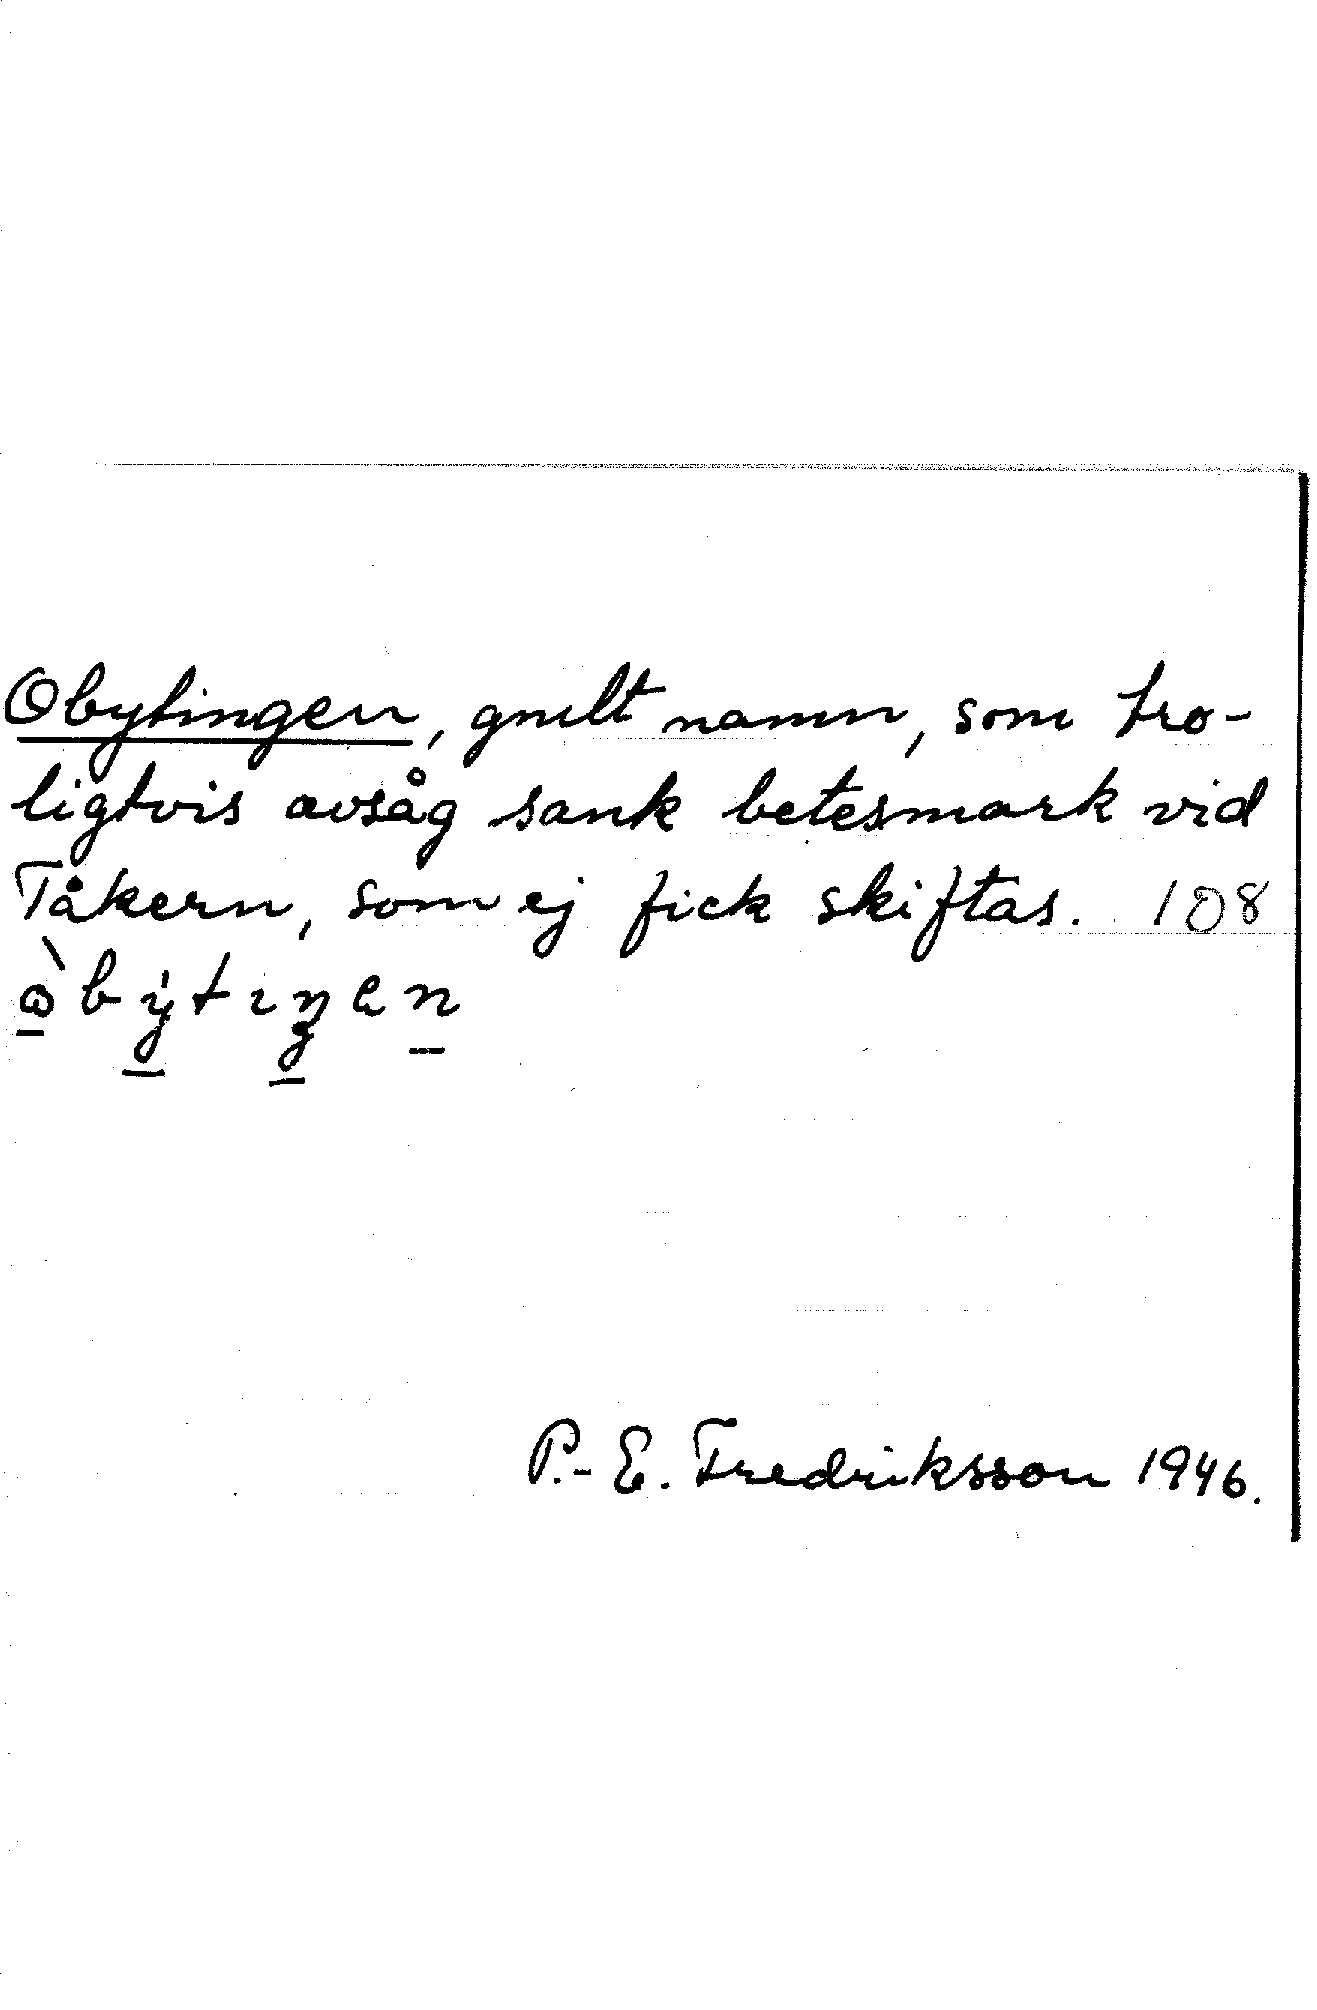 Obytingen, gmlt namn, som tro-
ligtvis avsåg sank betesmark vid
Tåkern, som ej fick skiftas. 108
P.-E. Fredriksson 1946.